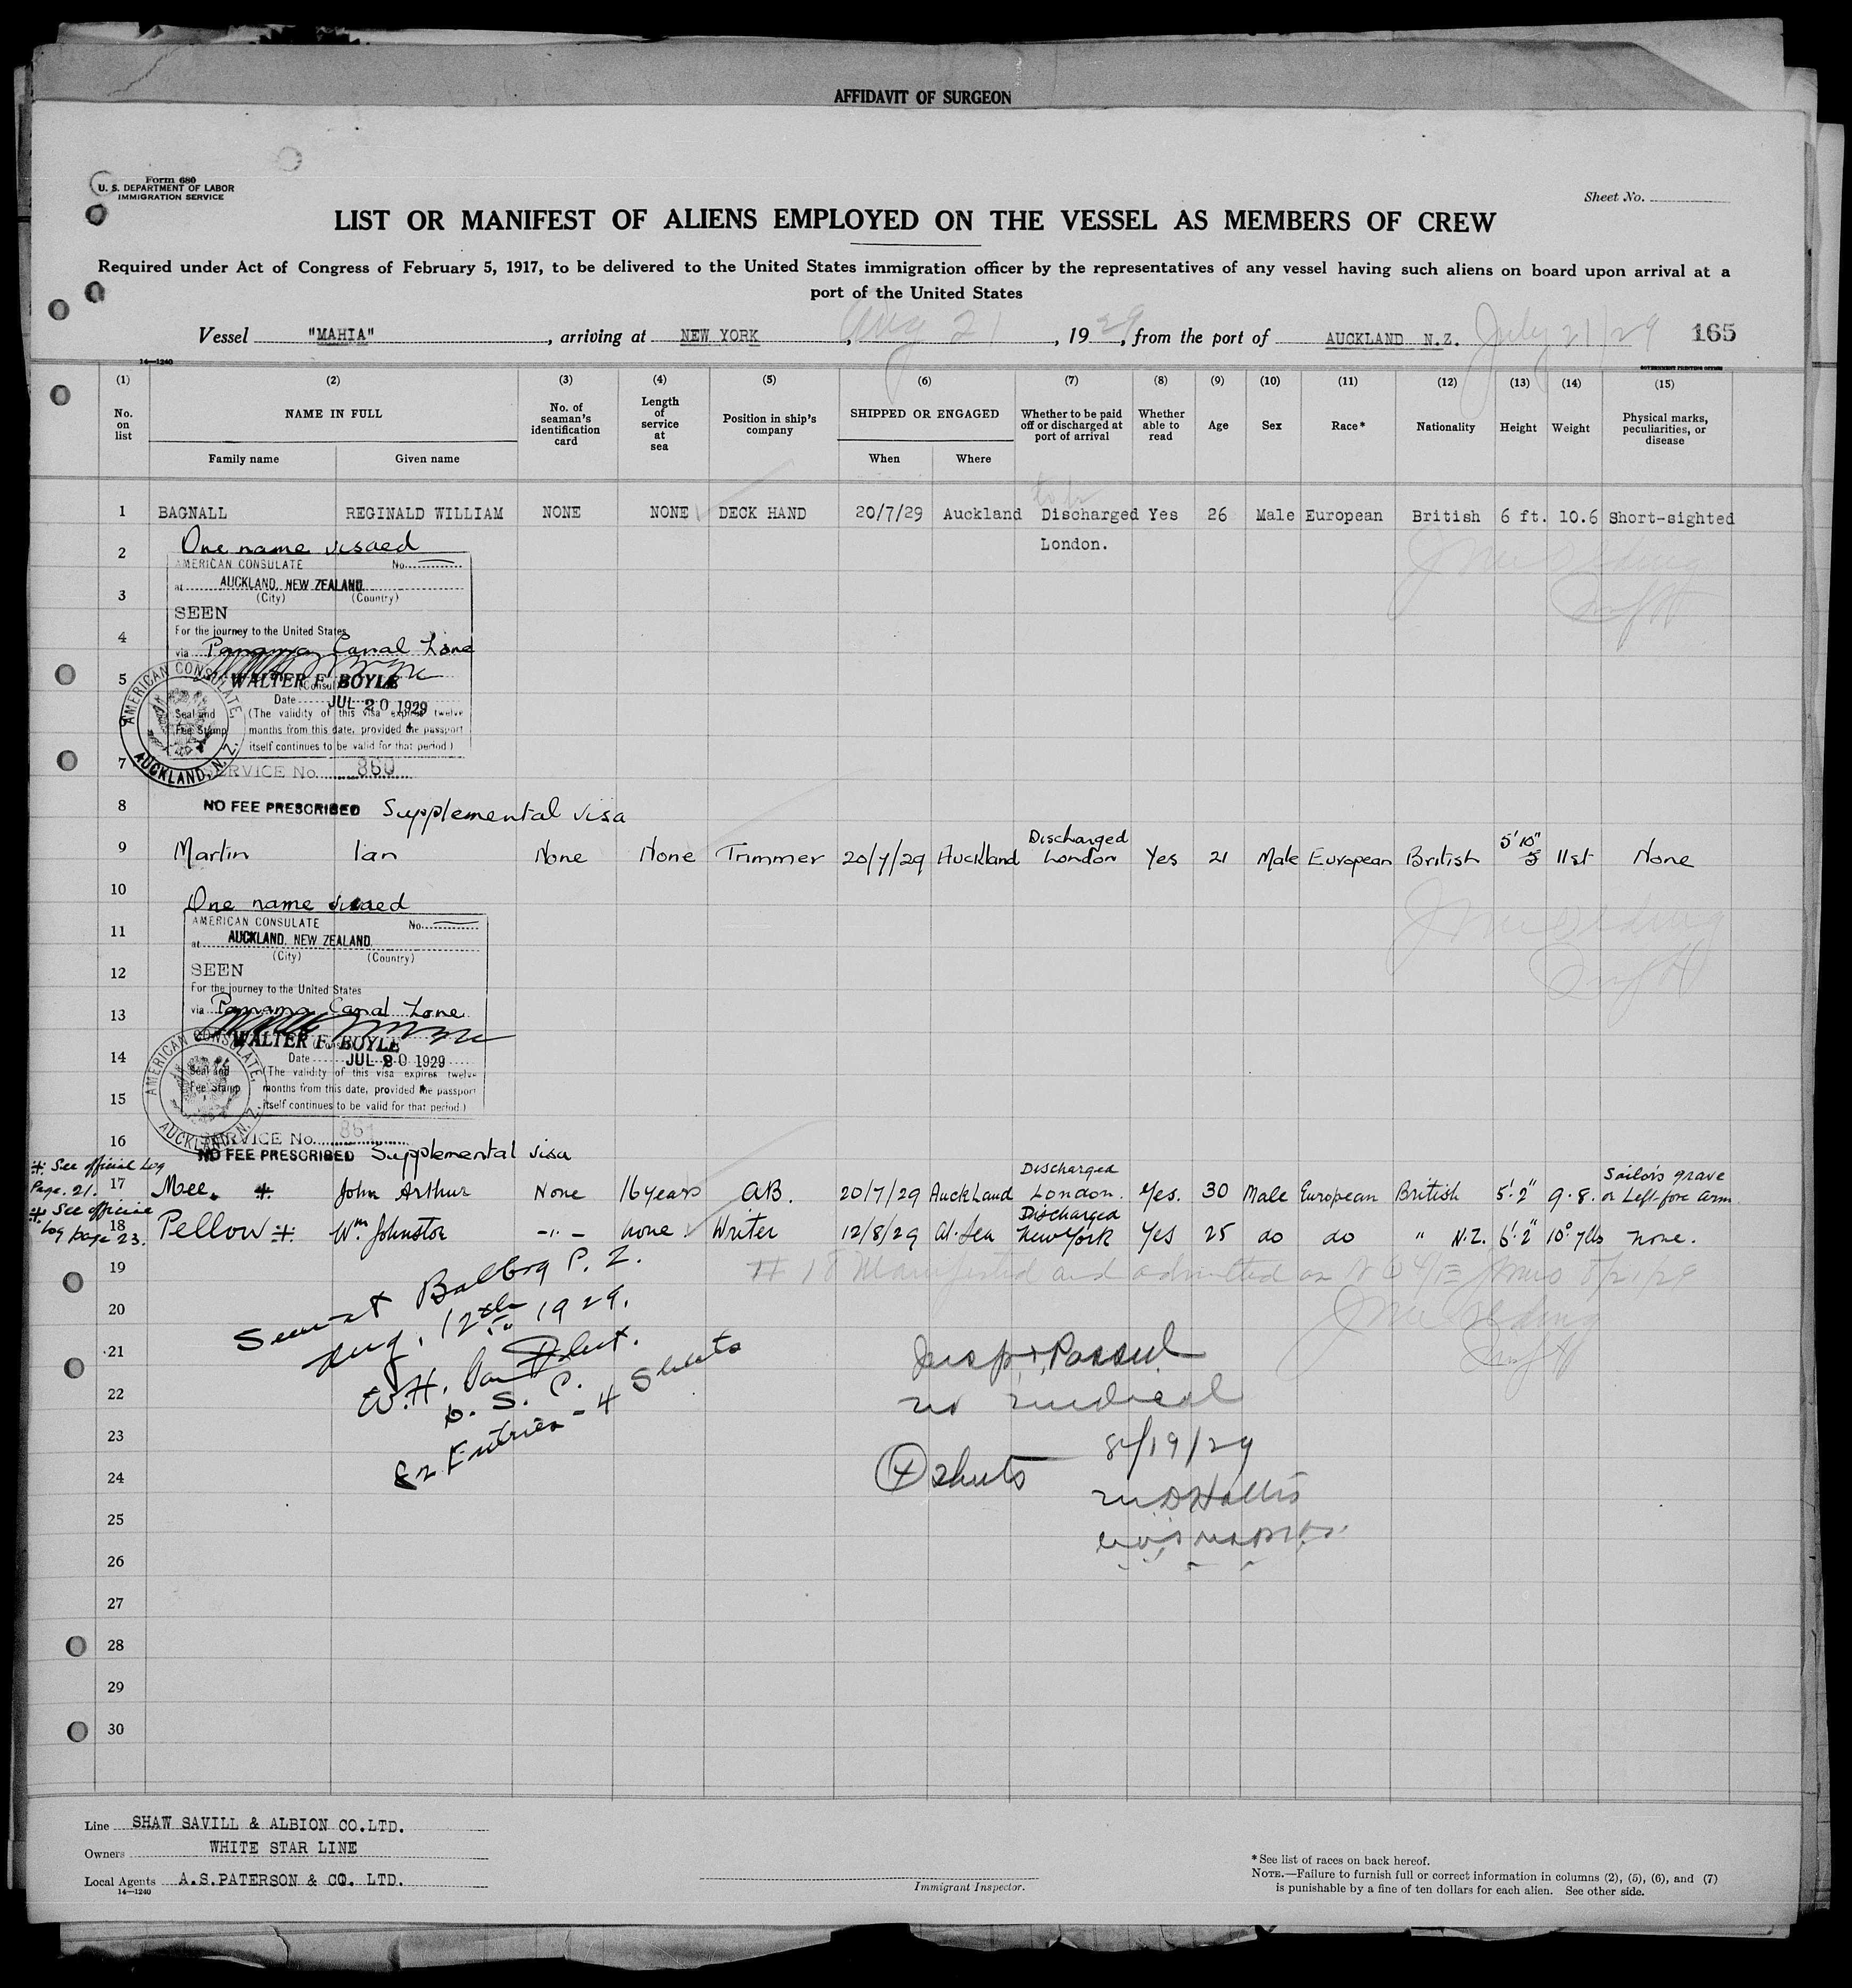 AFFIDAVIT OF SURGEON
Form 680
U. S. DEPARTMENT OF LABOR
IMMIGRATION SERVICE
Sheet No.
LIST OR MANIFEST OF ALIENS EMPLOYED ON THE VESSEL AS MEMBERS OF CREW
Required under Act of Congress of February 5, 1917, to be delivered to the United States immigration officer by the representatives of any vessel having such aliens on board upon arrival at a
port of the United States
Vessel "MAHIA", arriving at NEW YORK, Aug 21, 1929, from the port of AUCKLAND N.Z. July 21/29 165
14—1240 GOVERNMENT PRINTING OFFICE
(1) (2) (3) (4) (5) (6) (7) (8) (9) (10) (11) (12) (13) (14) (15)
No. on list NAME IN FULL No. of seaman's identification card Length of service at sea Position in ship's company SHIPPED OR ENGAGED Whether to be paid off or discharged at port of arrival Whether able to read Age Sex Race* Nationality Height Weight Physical marks, peculiarities, or disease
Family name Given name When Where
1 BAGNALL REGINALD WILLIAM NONE NONE DECK HAND 20/7/29 Auckland Discharged Yes 26 Male European British 6 ft. 10.6 Short-sighted
London.
2 One name visaed
AMERICAN CONSULATE No.
3 at AUCKLAND, NEW ZEALAND.
(City) (Country)
SEEN
4 For the journey to the United States
via Panama Canal Zone
5 WALTER F. BOYLE
(Consul
Date JUL 20 1929
6 Seal and Fee Stamp (The validity of this visa expires twelve
months from this date, provided the passport
itself continues to be valid for that period.)
AMERICAN CONSULATE, AUCKLAND, N. Z.
7 SERVICE No. 860
8 NO FEE PRESCRIBED Supplemental visa
9 Martin Ian None None Trimmer 20/7/29 Auckland Discharged London Yes 21 Male European British 5' 10" 11st None
10 One name visaed
11 AMERICAN CONSULATE No.
at AUCKLAND, NEW ZEALAND.
(City) (Country)
12 SEEN
For the journey to the United States
13 via Panama Canal Zone
WALTER F. BOYLE
(Consul
14 Date JUL 20 1929
Seal and Fee Stamp (The validity of this visa expires twelve
months from this date, provided the passport
15 itself continues to be valid for that period.)
AMERICAN CONSULATE, AUCKLAND, N. Z.
16 SERVICE No. 861
NO FEE PRESCRIBED Supplemental visa
See official Log
Page. 21. 17 Mee. John Arthur None 16 years A.B. 20/7/29 Auckland Discharged London. Yes. 30 Male European British 5'. 2" 9. 8. Sailor's grave on Left fore arm
See official
Log page 23. 18 Pellow Wm Johnston -"- none Writer 12/8/29 At. Sea Discharged New York Yes 25 do do " N.Z. 6'. 2" 10° 7lbs none.
19 # 18 Manifested and admitted on 8/21/29
20 Seen at Balboa C. Z.
Aug. 12th 1929.
21 W.H.
22 D. S. C.
Entries - 4 Sheets
Insp & Passed
no medical
23 8/19/29
24 4 sheets
25
26
27
28
29
30
Line SHAW SAVILL & ALBION CO.LTD.
Owners WHITE STAR LINE
Local Agents A.S.PATERSON & CO. LTD.
14—1240
Immigrant Inspector.
* See list of races on back hereof.
NOTE.—Failure to furnish full or correct information in columns (2), (5), (6), and (7)
is punishable by a fine of ten dollars for each alien. See other side.